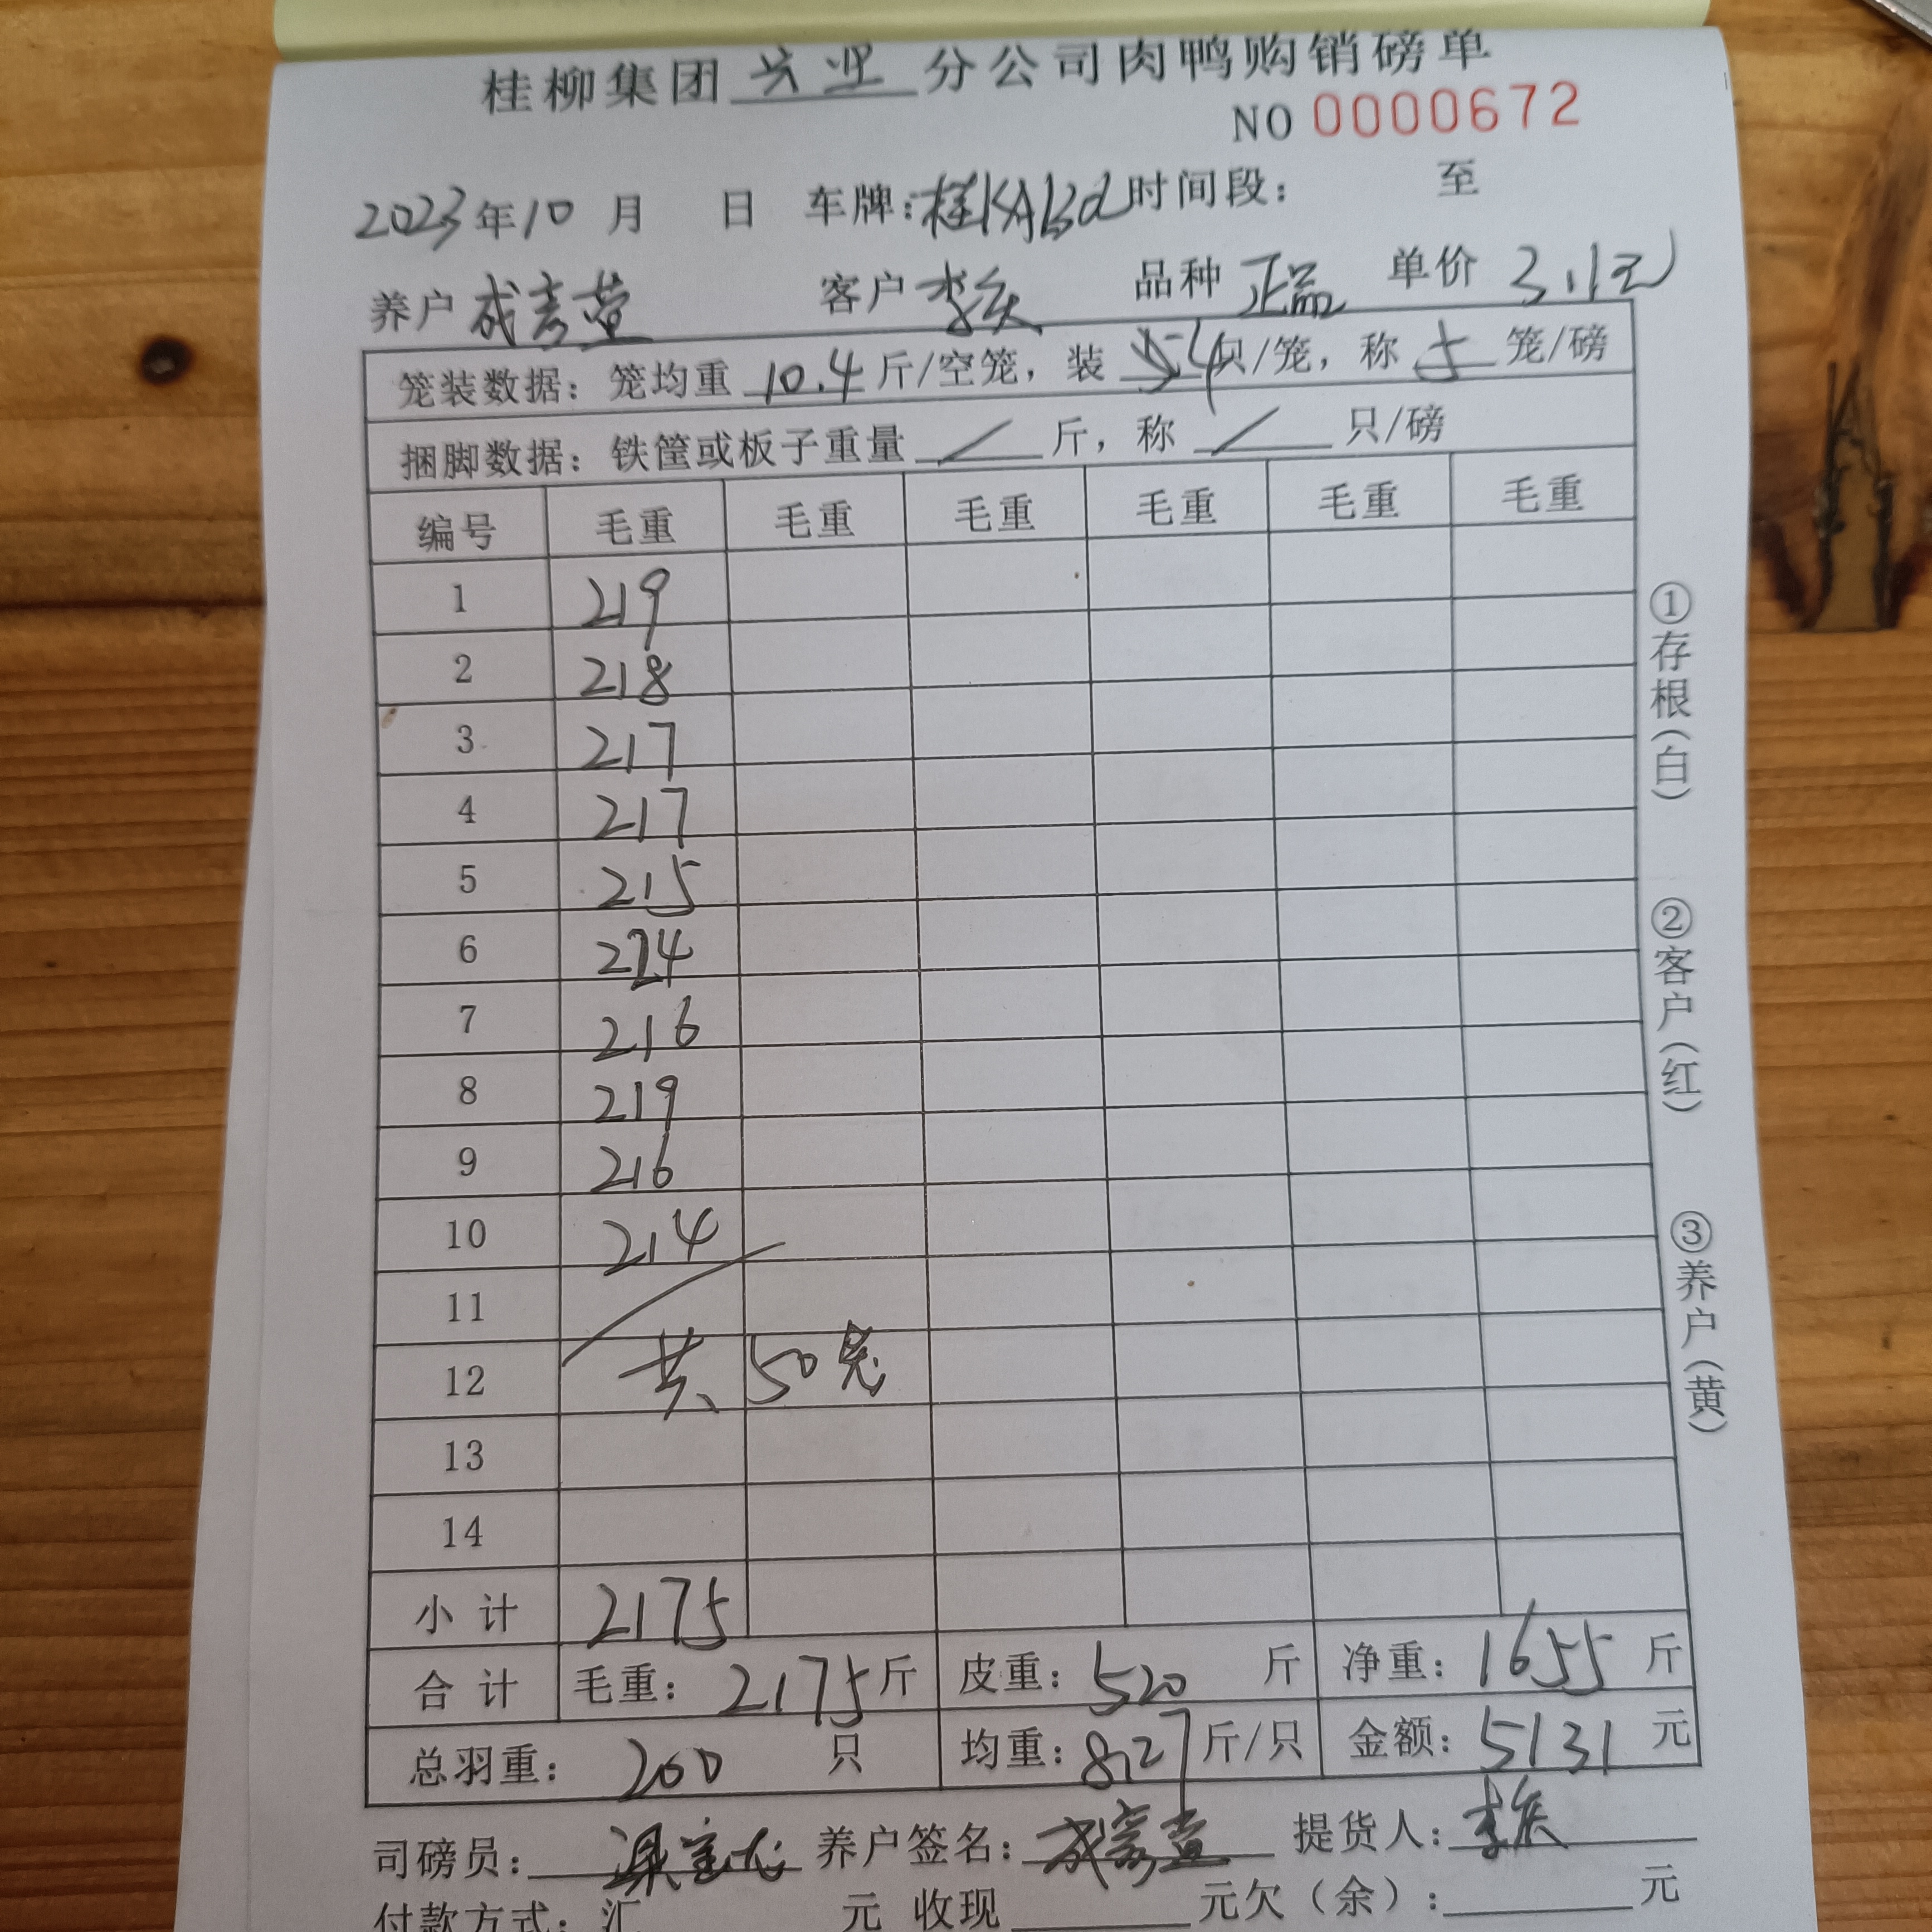 桂柳集团兴业分公司肉鸭购销磅单
NO 0000672
2023年10月 日 车牌:桂KAB 时间段: 至
养户 成 客户 李 品种 正品 单价 3.1元
笼装数据: 笼均重 10.4 斤/空笼, 装 4只/笼, 称 5 笼/磅
捆脚数据: 铁筐或板子重量 / 斤, 称 / 只/磅
编号 毛重 毛重 毛重 毛重 毛重 毛重
1 219
2 218
3 217
4 217
5 215
6 224
7 216
8 219
9 216
10 214
11
12 共 50笼
13
14
小计 2175
合计 毛重: 2175斤 皮重: 520 斤 净重: 1655 斤
总羽重: 200 只 均重: 8.27斤/只 金额: 5131 元
司磅员: 梁 养户签名: 成 提货人: 李
付款方式: 汇 元 收现 元欠(余): 元
①存根(白)
②客户(红)
③养户(黄)